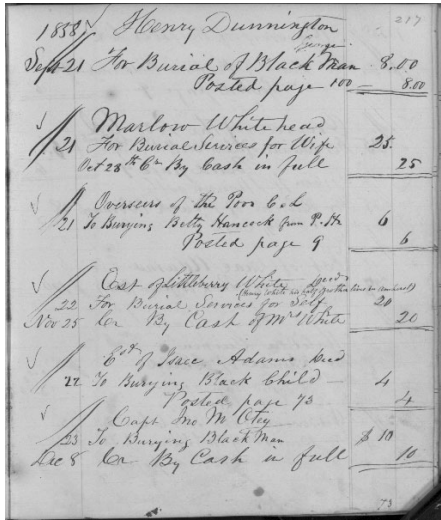 217
1858 Henry Dunnington
George
Sept 21 For Burial of Black Man 8.00
Posted page 100 8.00
Marlow Whitehead
21 For Burial Services for Wife 25.
Oct 28th Cr By Cash in full 25
Overseers of the Poor C.L
21 To Burying Betty Hancock from P. Hs 6
Posted page 9 6
Est of Littleberry White Decd
(Henry White his half Brother lives in
22 For Burial Services for Self 20
Nov 25 Cr By Cash of Mrs White 20
Est of Isaac Adams Decd
22 To Burying Black Child 4
Posted page 73 4
Capt Jno M Otey
23 To Burying Black Man $ 10
Dec 8 Cr By Cash in full 10
73